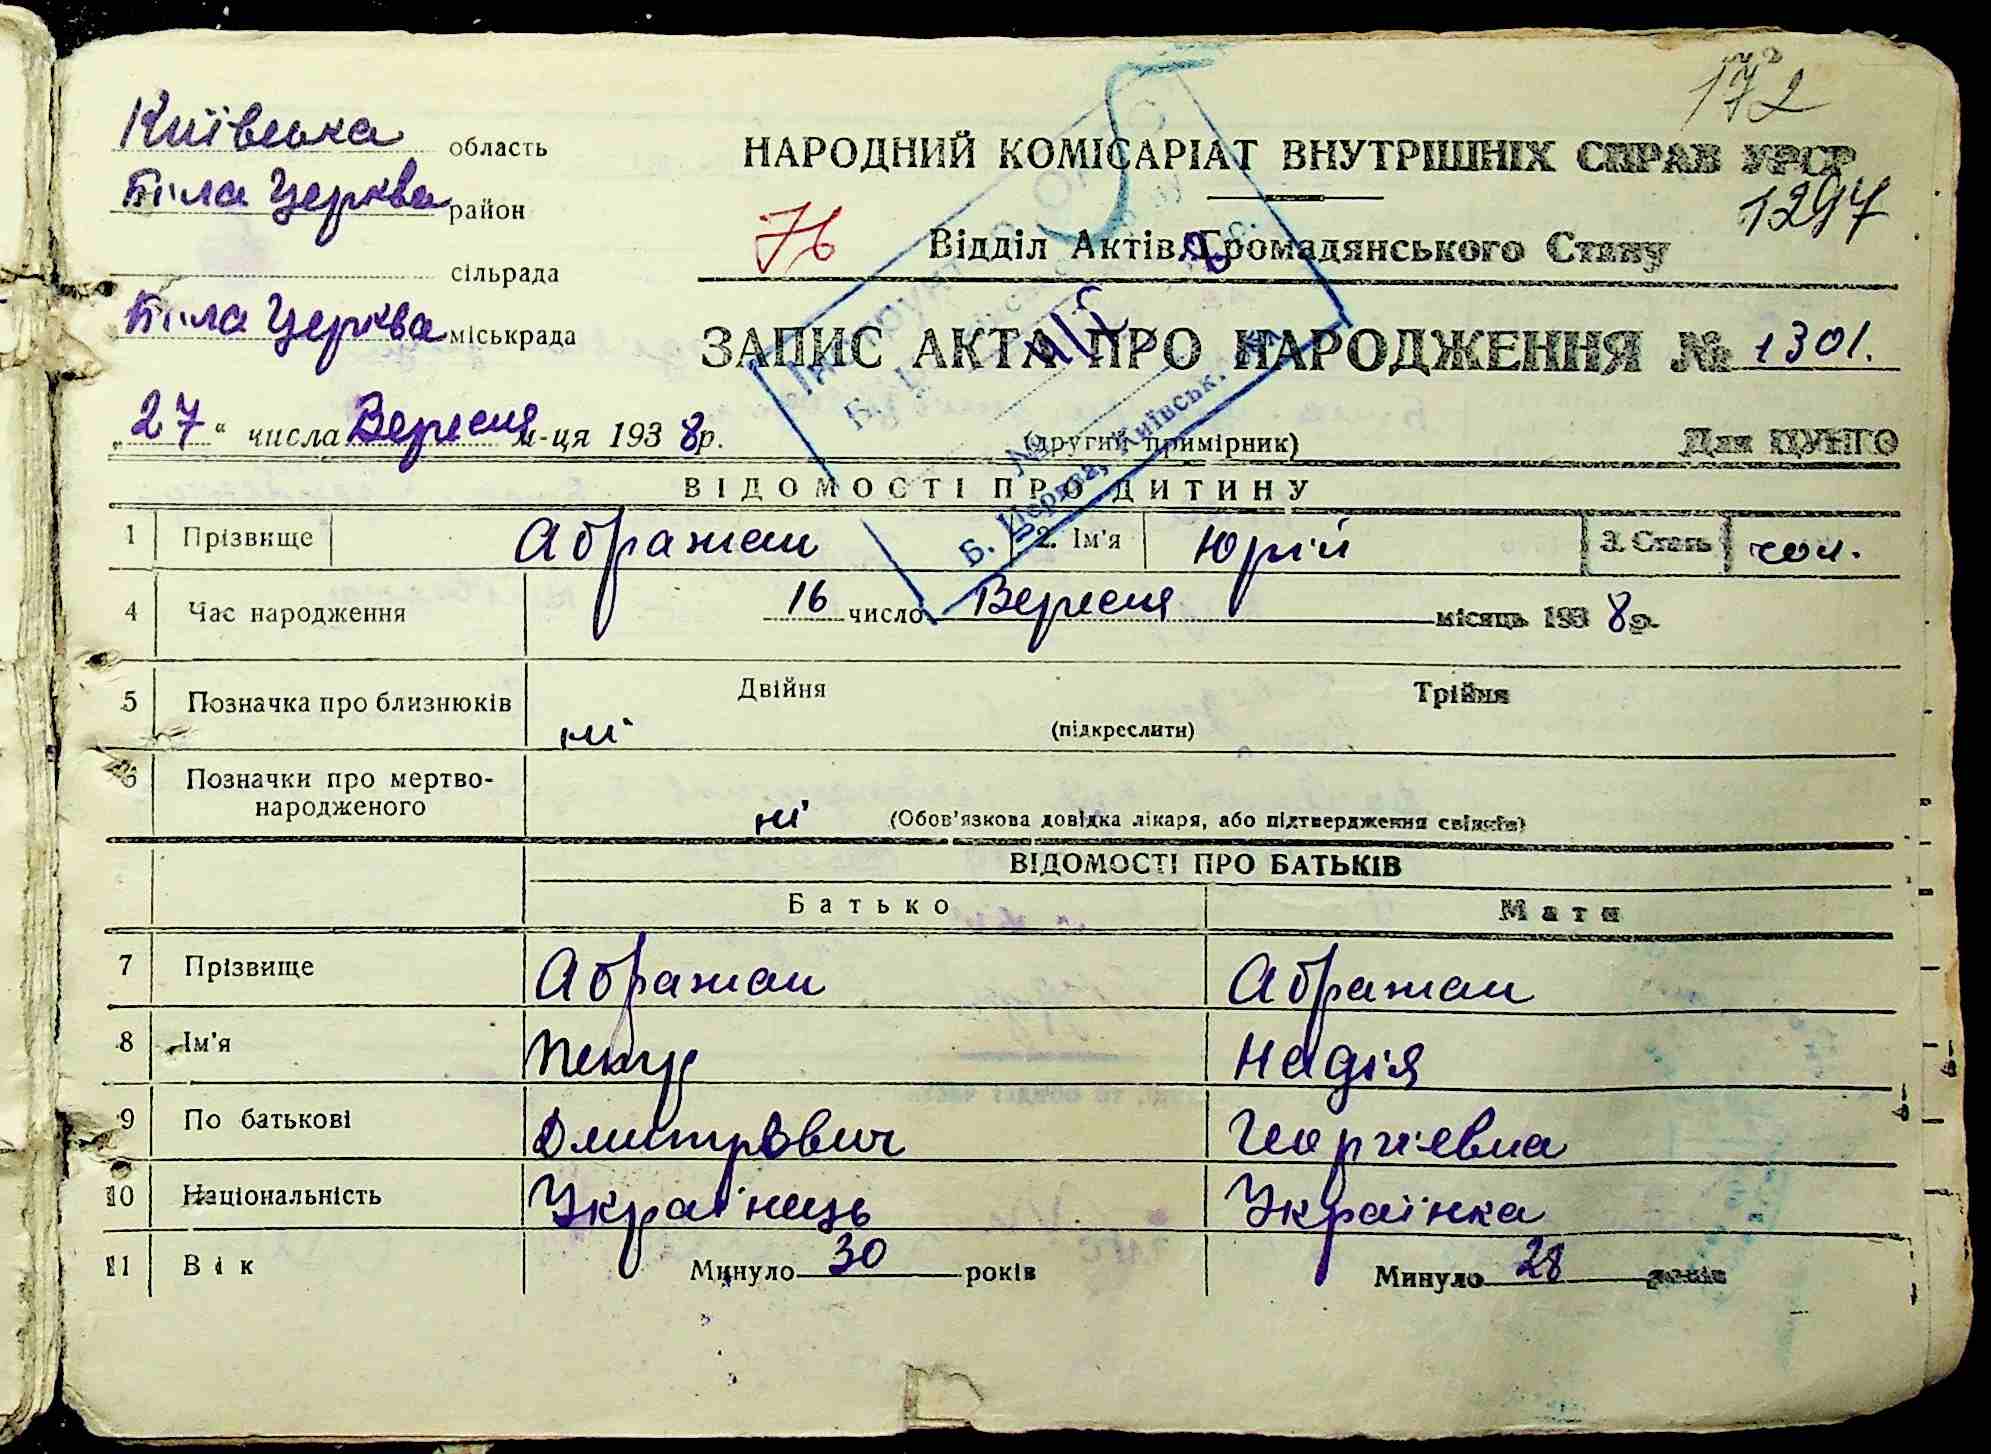 172
Київська область
НАРОДНИЙ КОМІСАРІАТ ВНУТРІШНІХ СПРАВ УРСР
Біла Церква район
1297
76 Відділ Актів Громадянського Стану
сільрада
Біла Церква міськрада
ЗАПИС АКТА ПРО НАРОДЖЕННЯ № 1301.
„27“ числа Вересня м-ця 1938р.
(другий примірник) Для ЦУНГО
Б. Церква, Київськ.
ВІДОМОСТІ ПРО ДИТИНУ
1 Прізвище Абражан 2. Ім'я Юрій 3. Стать чол.
4 Час народження 16 число Вересня місяць 1938р.
5 Позначка про близнюків ні Двійня Трійня
(підкреслити)
6 Позначки про мертво-
народженого ні (Обов'язкова довідка лікаря, або підтвердження свідків)
ВІДОМОСТІ ПРО БАТЬКІВ
Батько Мати
7 Прізвище Абражан Абражан
8 Ім'я Петро Надія
9 По батькові Дмитрович Георгієвна
10 Національність Українець Українка
11 Вік Минуло 30 років Минуло 28 років